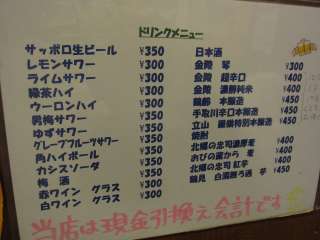 ドリンクメニュー
サッポロ生ビール ¥350
レモンサワー ¥350
ライムサワー ¥350
緑茶ハイ ¥300
ウーロンハイ ¥300
男梅サワー ¥350
ゆずサワー ¥350
グレープフルーツサワー ¥350
角ハイボール ¥350
カシスソーダ ¥350
梅酒 ¥300
赤ワイン グラス ¥300
白ワイン グラス ¥300
日本酒
金陵 琴 ¥300
金陵 超辛口 ¥400
金陵 濃醇純米 ¥400
鶴齢 本醸造
手取川辛口本醸造 ¥450
立山 本醸造 ¥400
焼酎
¥400
¥400
¥400
¥450
当店は現金引換え会計です